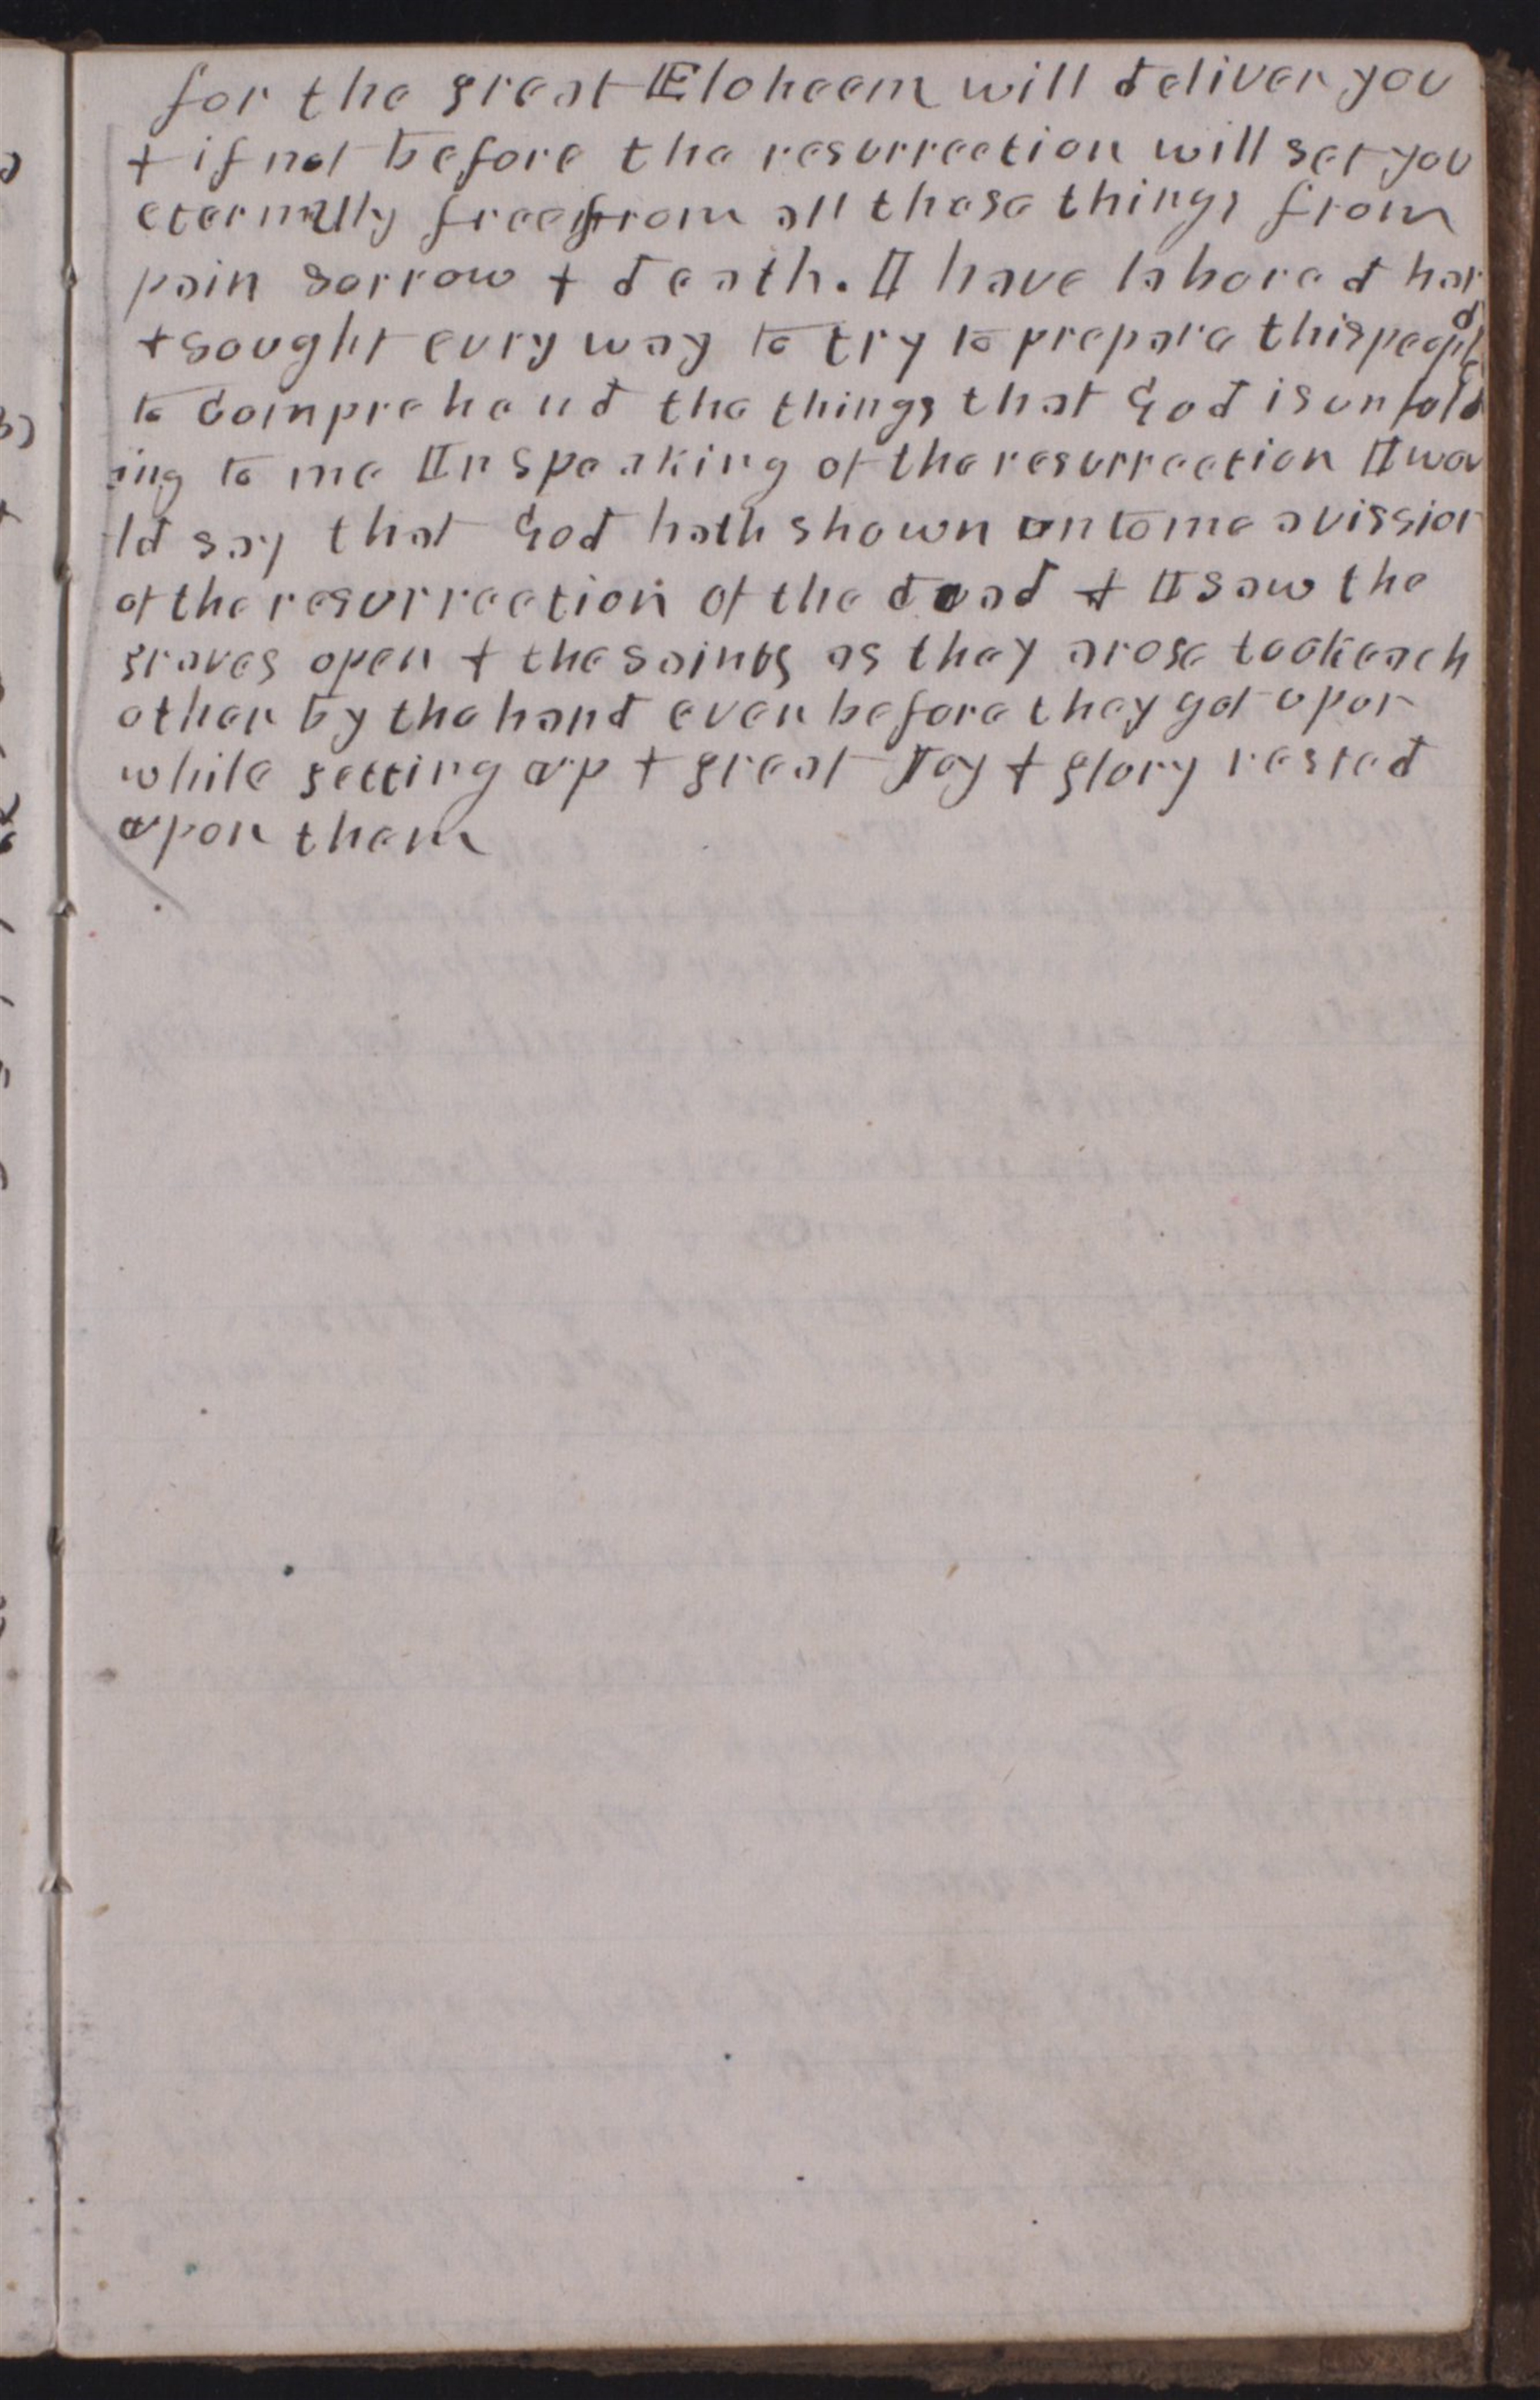 for the great Eloheem will deliver you
+ if not before the resurrection will set you
eternally free from all these things from
pain sorrow + death. I have labored hard
+ sought evry way to try to prepare this people
to comprehend the things that God is unfold
ing to me In speaking of the resurrection I wou
ld say that God hath shown unto me a vission
of the resurrection of the dead + I saw the
graves open + the saints as they arose took each
other by the hand even before they got up or
while getting up + great Joy + glory rested
upon them